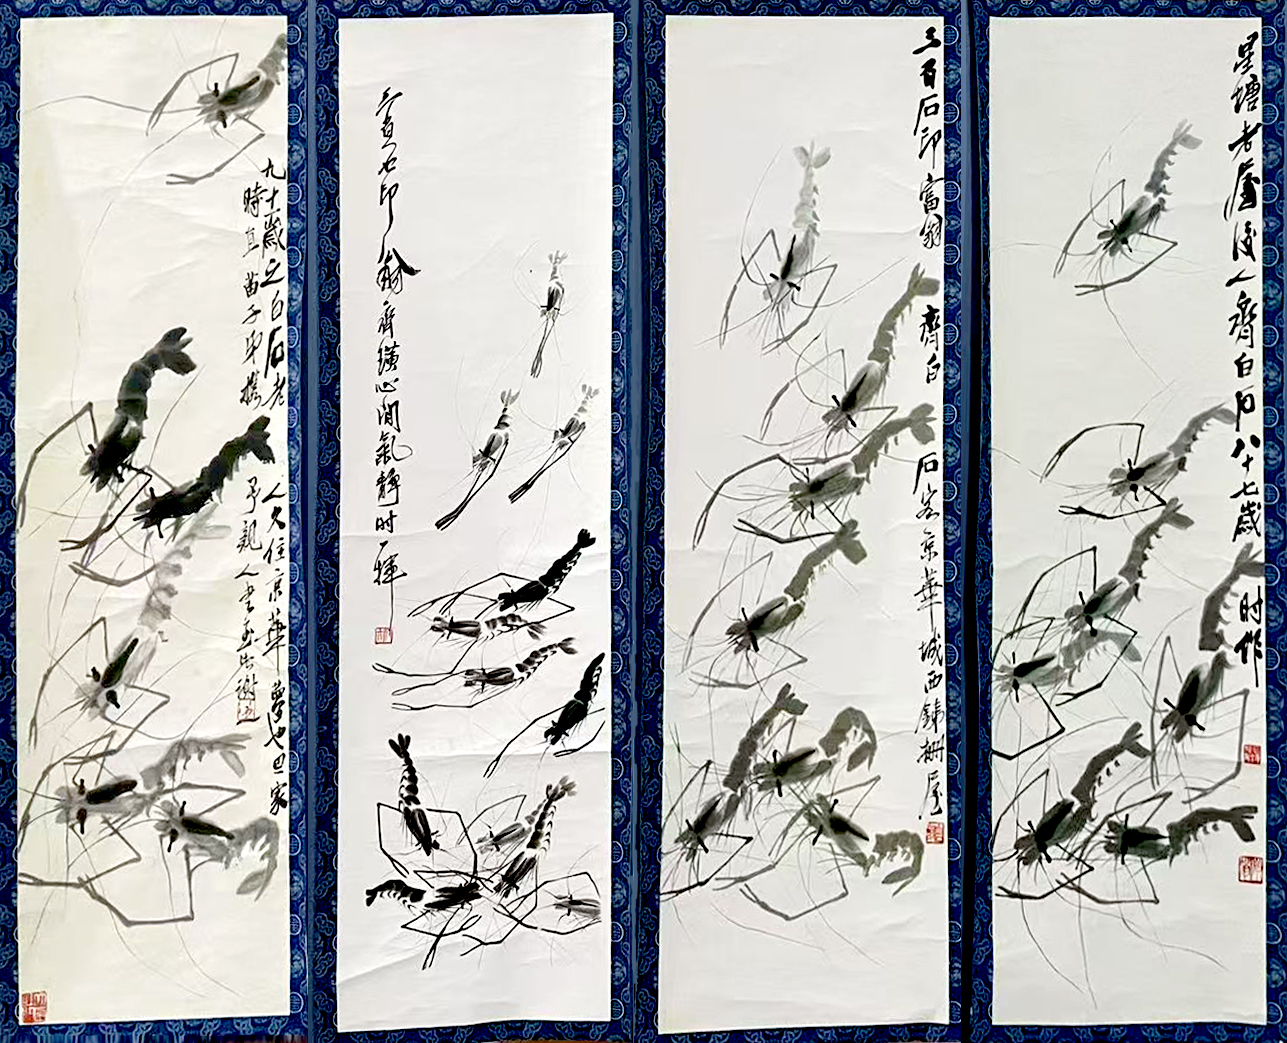 星塘老屋後人齊白石八十七歲时作
三百石印富翁齊白石客京華城西鐵柵屋
三百石印翁齊璜心閒氣靜时一揮
九十歲之白石老人久住京華夢也思家
時直苗子弟携予親人書